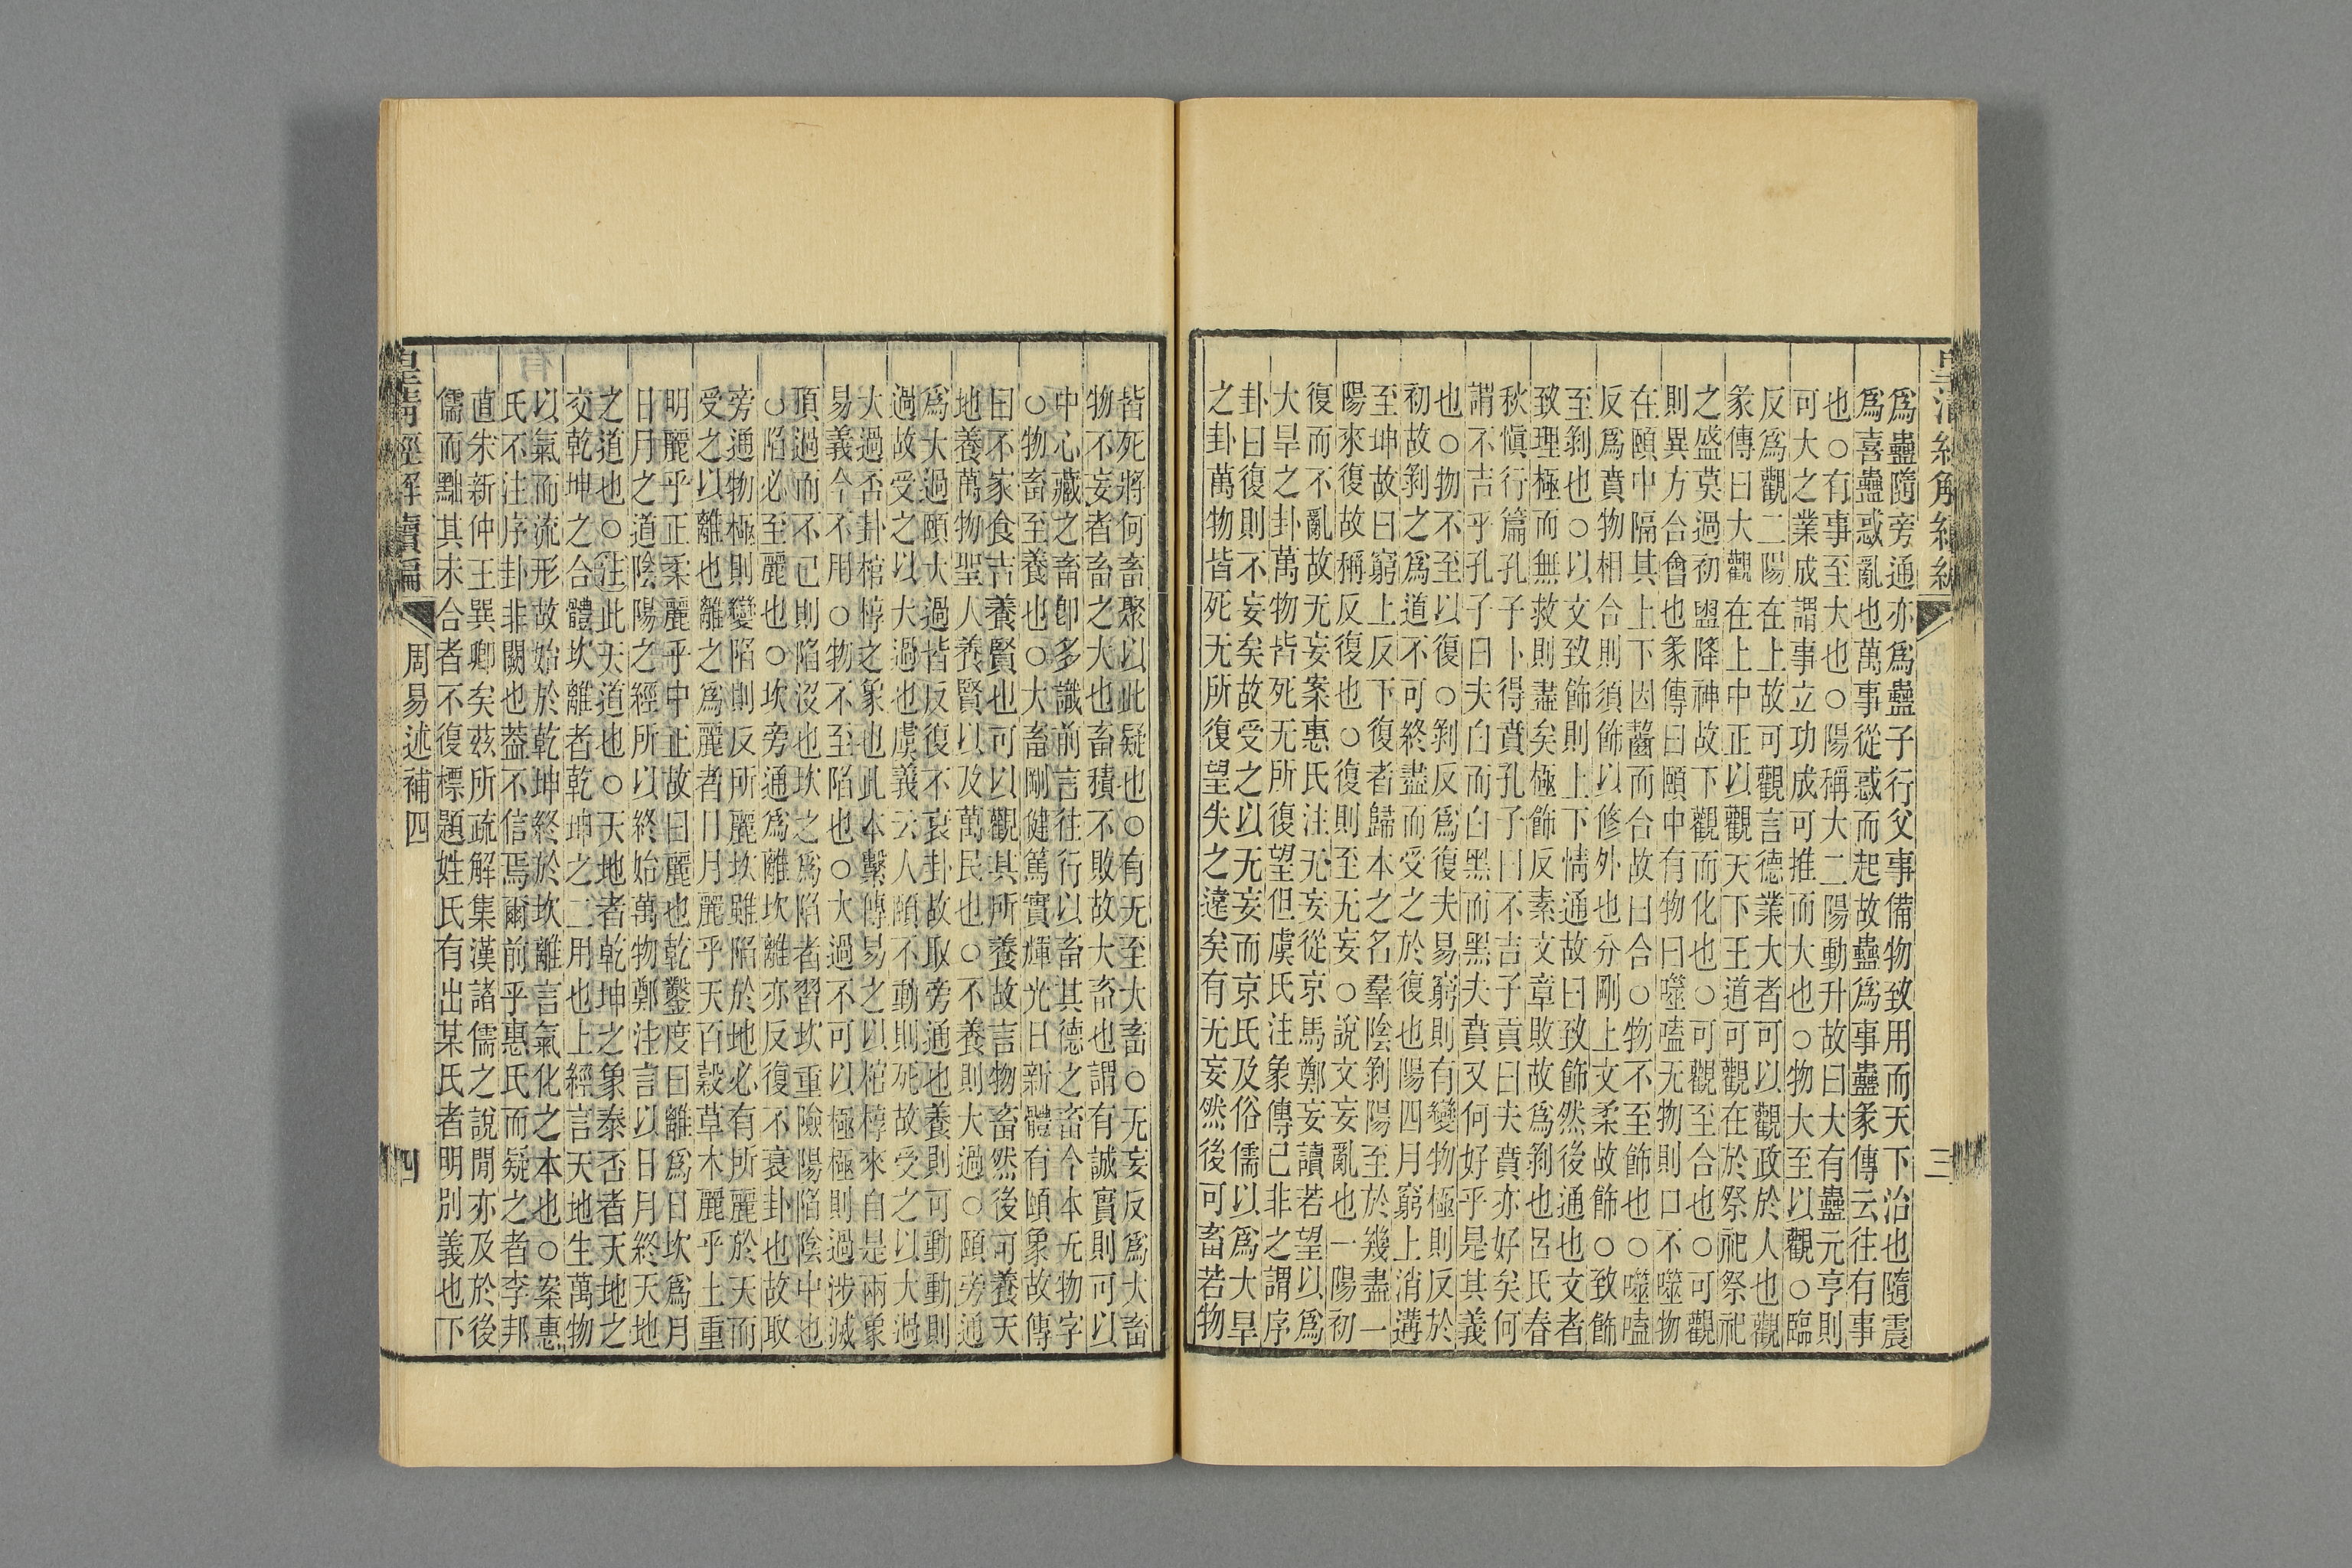 爲蠱隨旁通亦爲蠱子行父事備物致用而天下治也隨震
爲喜蠱惑亂也萬事從惑而起故蠱爲事蠱彖傳云往有事
也○有事至大也○陽稱大二陽動升故曰大有蠱元亨則
可大之業成謂事立功成可推而大也○物大至以觀○臨
反爲觀二陽在上故可觀言德業大者可以觀政於人也觀
彖傳曰大觀在上中正以觀天下王道可觀在於祭祀祭祀
之盛莫過初盥降神故下觀而化也○可觀至合也○可觀
則異方合會也彖傳曰頤中有物曰噬嗑无物則口不噬物
在頤中隔其上下因齧而合故曰合○物不至飾也○噬嗑
反爲賁物相合則須飾以修外也分剛上文柔故飾○致飾
至剝也○以文致飾則上下情通故曰致飾然後通也文者
致理極而無救則盡矣極飾反素文章敗故爲剝也呂氏春
秋愼行篇孔子卜得賁孔子曰不吉子貢曰夫賁亦好矣何
謂不吉乎孔子曰夫白而白黑而黑夫賁又何好乎是其義
也○物不至以復○剝反爲復夫易窮則有變物極則反於
初故剝之爲道不可終盡而受之於復也陽四月窮上消遘
至坤故曰窮上反下復者歸本之名羣陰剝陽至於幾盡一
陽來復故稱反復也○復則至无妄○說文妄亂也一陽初
復而不亂故无妄案惠氏注无妄從京馬鄭妄讀若望以爲
大旱之卦萬物皆死无所復望但虞氏注象傳已非之謂序
卦曰復則不妄矣故受之以无妄而京氏及俗儒以爲大旱
之卦萬物皆死无所復望失之遠矣有无妄然後可畜若物
三
皆死將何畜聚以此疑也○有无至大畜○无妄反爲大畜
物不妄者畜之大也畜積不敗故大畜也謂有誠實則可以
中心藏之畜卽多識前言往行以畜其德之畜今本无物字
○物畜至養也○大畜剛健篤實輝光日新體有頤象故傳
曰不家食吉養賢也可以觀其所養故言物畜然後可養天
地養萬物聖人養賢以及萬民也○不養則大過○頤旁通
爲大過頤大過皆反復不衰卦故取旁通也養則可動動則
過故受之以大過也虞義云人頤不動則死故受之以大過
大過否卦棺椁之象也此本繫傳易之以棺椁來自是兩象
易義今不用○物不至陷也○大過不可以極極則過涉滅
頂過而不已則陷沒也坎之爲陷者習坎重險陽陷陰中也
○陷必至麗也○坎旁通爲離坎離亦反復不衰卦也故取
旁通物極則變陷則反所麗坎雖陷於地必有所麗於天而
受之以離也離之爲麗者日月麗乎天百穀草木麗乎土重
明麗乎正柔麗乎中正故曰麗也乾鑿度曰離爲日坎爲月
日月之道陰陽之經所以終始萬物鄭注言以日月終天地
之道也○注此天道也○天地者乾坤之象泰否者天地之
交乾坤之合體坎離者乾坤之二用也上經言天地生萬物
以氣而流形故始於乾坤終於坎離言氣化之本也○案惠
氏不注序卦非闕也葢不信焉爾前乎惠氏而疑之者李邦
直朱新仲王巽卿矣茲所疏解集漢諸儒之說閒亦及於後
儒而黜其未合者不復標題姓氏有出某氏者明別義也下
皇清經解續編
周易述補四
四